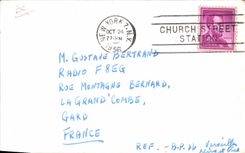 NEW YORK, N.Y.
OCT 24
1956
CHURCH STREET
STATION
M. GUSTAVE BERTRAND
RADIO F8EG
RUE MONTAGNE BERNARD,
LA GRAND'COMBE,
GARD
FRANCE
REF. - B.P. 06